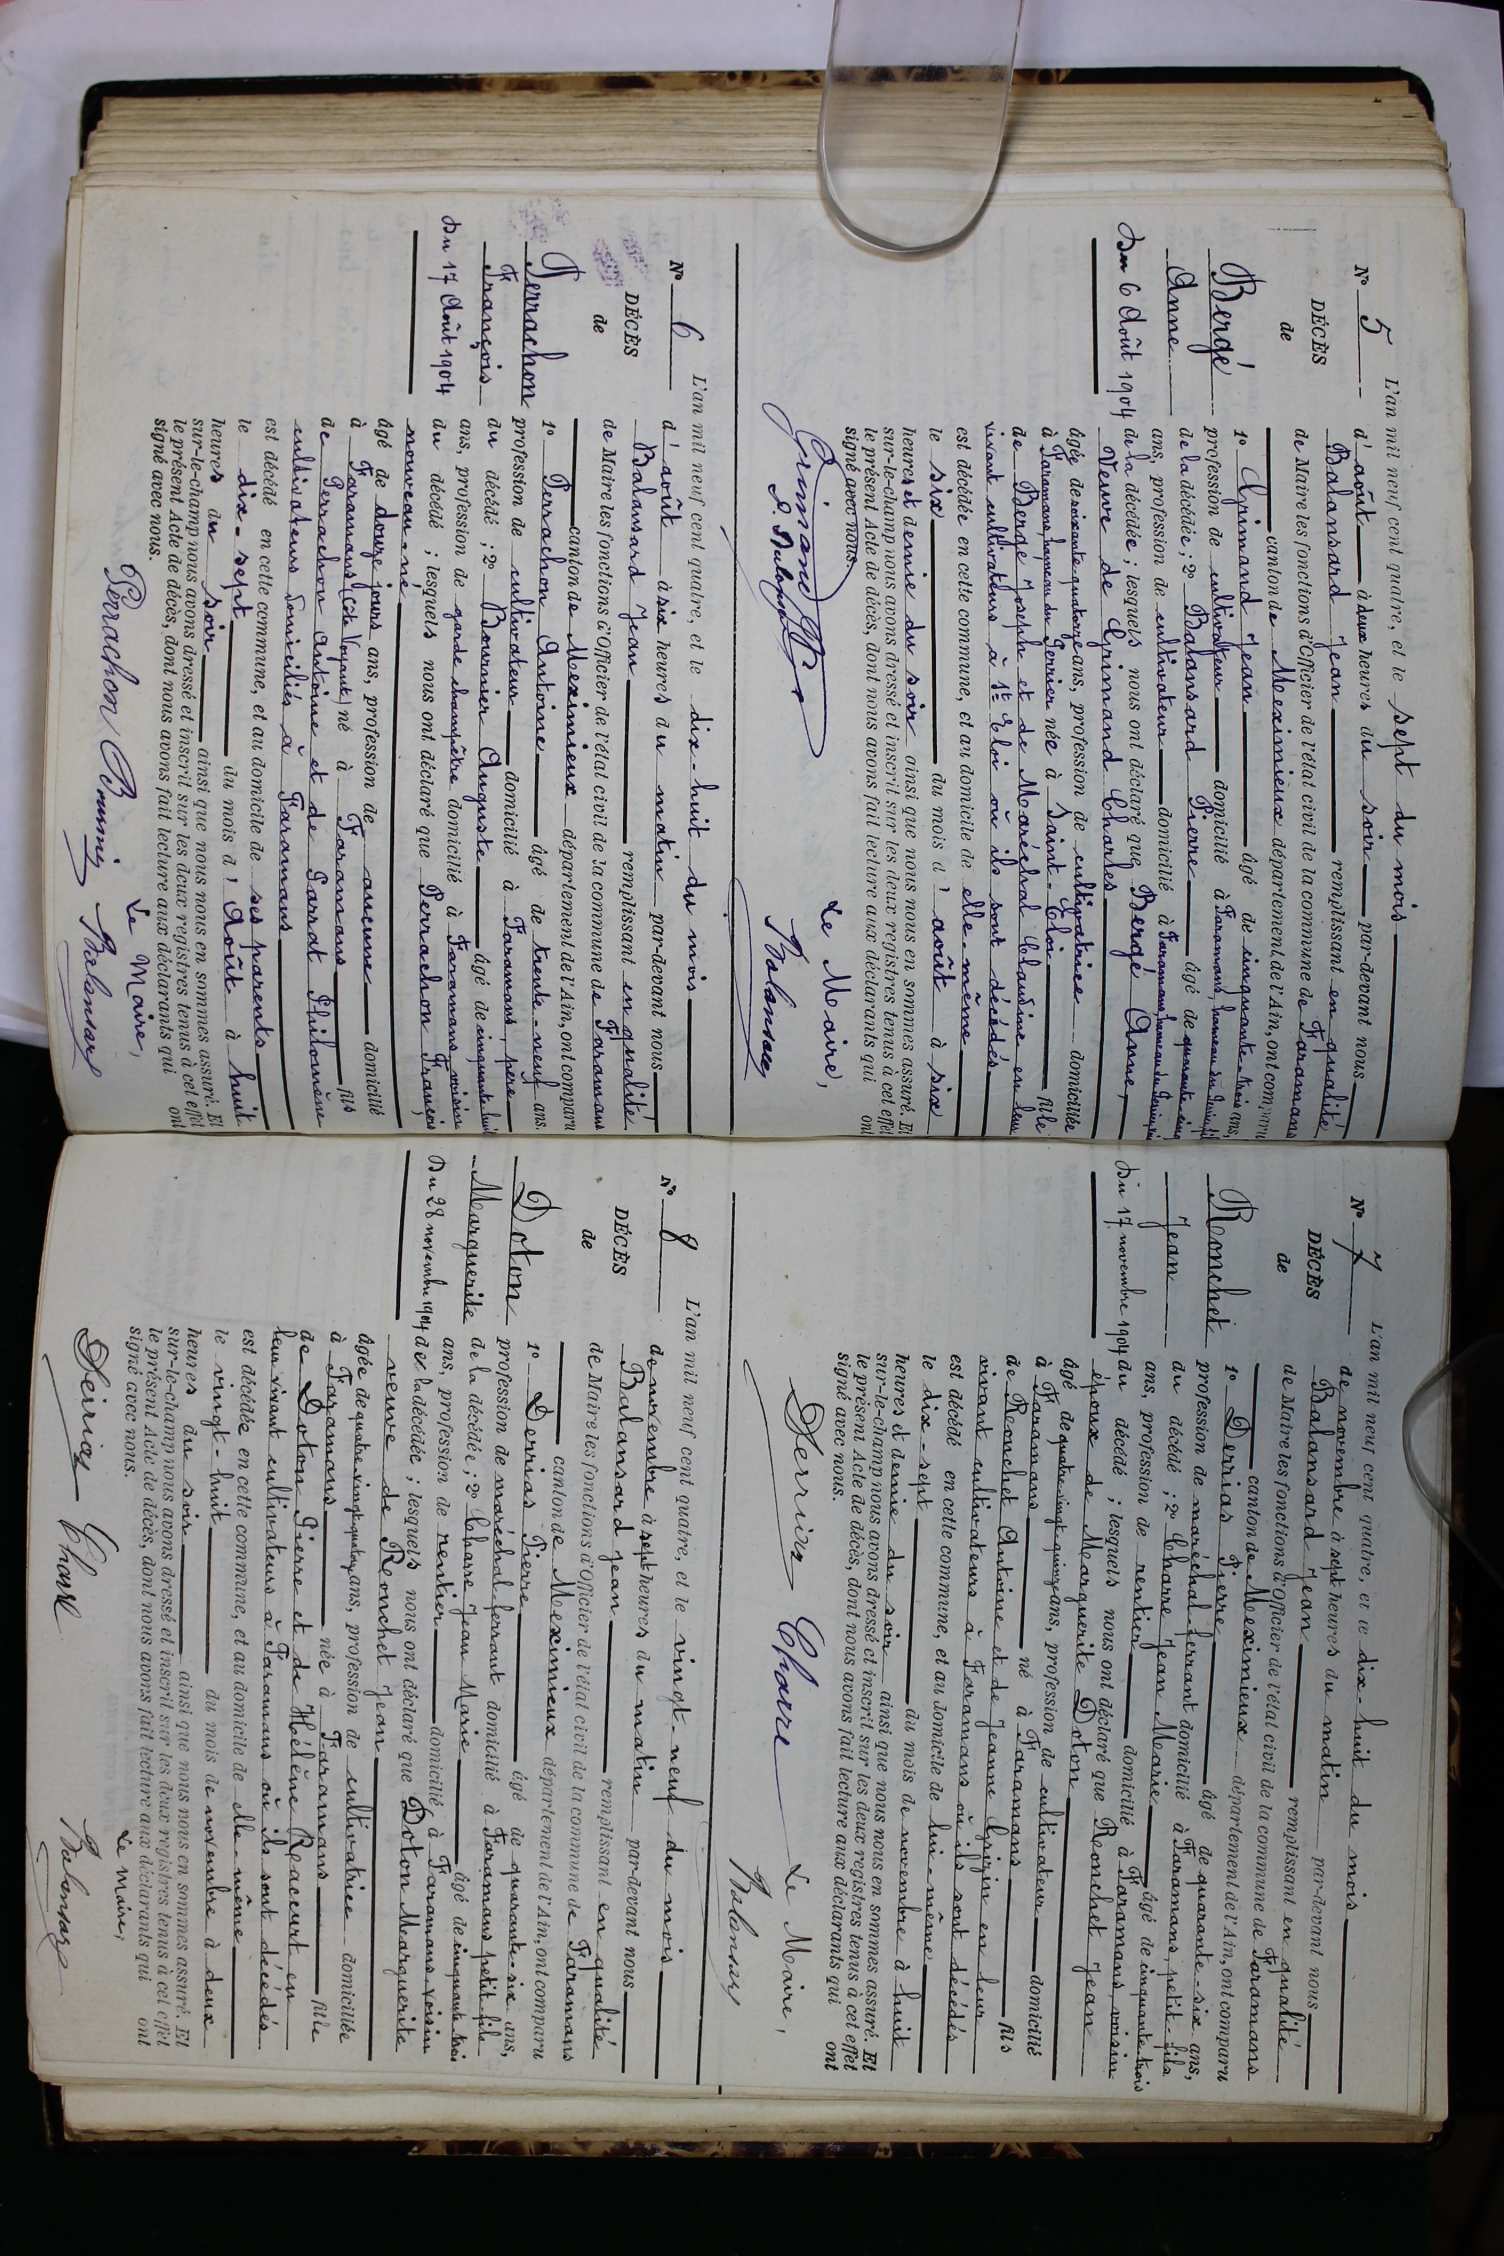 N° 5
DÉCÈS
de
Bergé
Anne
Du 6 Août 1904
L'an mil neuf cent quatre, et le sept du mois
d'août à deux heures du soir par-devant nous
Balansard Jean remplissant en qualité
de Maire les fonctions d'Officier de l'état civil de la commune de Faramans
canton de Meximieux département de l'Ain, ont comparu
1° Grimand Jean âgé de cinquante-trois ans,
profession de cultivateur domicilié à Faramans, hameau du
de la décédée ; 2° Balansard Pierre âgé de quarante-cinq
ans, profession de cultivateur domicilié à Faramans, hameau du
de la décédée ; lesquels nous ont déclaré que Bergé Anne,
Veuve de Grimand Charles
âgée de soixante-quatorze ans, profession de cultivatrice domiciliée
à Faramans, hameau du Perrier née à Saint-Eloi fille
de Bergé Joseph et de Maréchal Claudine en leur
vivant cultivateurs à St Eloi où ils sont décédés
est décédée en cette commune, et au domicile de elle-même
le six du mois d'août à six
heures et demie du soir ainsi que nous nous en sommes assuré. Et
sur-le-champ nous avons dressé et inscrit sur les deux registres tenus à cet effet
le présent Acte de décès, dont nous avons fait lecture aux déclarants qui ont
signé avec nous.
Le Maire,
Grimand
P. Balansard
Balansard
N° 6
DÉCÈS
de
Perrachon
François
Du 17 Août 1904
L'an mil neuf cent quatre, et le dix-huit du mois
d'août à six heures du matin par-devant nous
Balansard Jean remplissant en qualité
de Maire les fonctions d'Officier de l'état civil de la commune de Faramans
canton de Meximieux département de l'Ain, ont comparu
1° Perrachon Antoine âgé de trente-neuf ans,
profession de cultivateur domicilié à Faramans, père
du décédé ; 2° Bournier Auguste âgé de cinquante-huit
ans, profession de garde champêtre domicilié à Faramans, voisin
du décédé ; lesquels nous ont déclaré que Perrachon François
nouveau-né
âgé de douze jours ans, profession de aucune domicilié
à Faramans (Côte Voyant) né à Faramans fils
de Perrachon Antoine et de Sarrat Philomène
cultivateurs domiciliés à Faramans
est décédé en cette commune, et au domicile de ses parents
le dix-sept du mois d'Août à huit
heures du soir ainsi que nous nous en sommes assuré. Et
sur-le-champ nous avons dressé et inscrit sur les deux registres tenus à cet effet
le présent Acte de décès, dont nous avons fait lecture aux déclarants qui ont
signé avec nous.
Le Maire,
Perrachon Bournier Balansard
N° 7
DÉCÈS
de
Ronchet
Jean
Du 17 novembre 1904
L'an mil neuf cent quatre, et le dix-huit du mois
de novembre à sept heures du matin par-devant nous
Balansard Jean remplissant en qualité
de Maire les fonctions d'Officier de l'état civil de la commune de Faramans
canton de Meximieux département de l'Ain, ont comparu
1° Derrias Pierre âgé de quarante-six ans,
profession de maréchal-ferrant domicilié à Faramans, petit-fils
du décédé ; 2° Charre Jean Marie âgé de cinquante trois
ans, profession de rentier domicilié à Faramans, voisin
du décédé ; lesquels nous ont déclaré que Ronchet Jean
époux de Marguerite Doton
âgé de quatre-vingt-quinze ans, profession de cultivateur domicilié
à Faramans né à Faramans fils
de Ronchet Antoine et de Jeanne en leur
vivant cultivateurs à Faramans où ils sont décédés
est décédé en cette commune, et au domicile de lui-même
le dix-sept du mois de novembre à huit
heures et demie du soir ainsi que nous nous en sommes assuré. Et
sur-le-champ nous avons dressé et inscrit sur les deux registres tenus à cet effet
le présent Acte de décès, dont nous avons fait lecture aux déclarants qui ont
signé avec nous.
Le Maire,
Derrias Charre Balansard
N° 8
DÉCÈS
de
Doton
Marguerite
Du 28 novembre 1904
L'an mil neuf cent quatre, et le vingt-neuf du mois
de novembre à sept heures du matin par-devant nous
Balansard Jean remplissant en qualité
de Maire les fonctions d'Officier de l'état civil de la commune de Faramans
canton de Meximieux département de l'Ain, ont comparu
1° Derrias Pierre âgé de quarante-six ans,
profession de maréchal-ferrant domicilié à Faramans petit-fils
de la décédée ; 2° Charre Jean Marie âgé de cinquante trois
ans, profession de rentier domicilié à Faramans voisin
de la décédée ; lesquels nous ont déclaré que Doton Marguerite
veuve de Ronchet Jean
âgée de ans, profession de cultivatrice domiciliée
à Faramans née à Faramans fille
de Doton Pierre et de Hélène Reaccurt en
leur vivant cultivateurs à Faramans où ils sont décédés
est décédée en cette commune, et au domicile de elle-même
le vingt-huit du mois de novembre à deux
heures du soir ainsi que nous nous en sommes assuré. Et
sur-le-champ nous avons dressé et inscrit sur les deux registres tenus à cet effet
le présent Acte de décès, dont nous avons fait lecture aux déclarants qui ont
signé avec nous.
Le Maire,
Derrias Charre Balansard